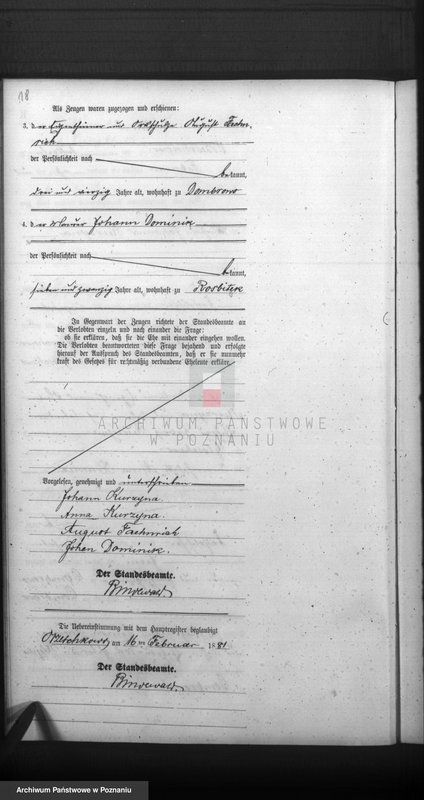 18
Als Zeugen waren zugezogen und erschienen:
3. d er Eigenthümer und Ortsschulze August Fechn-
rich
der Persönlichkeit nach
bekannt,
drei und vierzig Jahre alt, wohnhaft zu Dombrowo
4. d er Maurer Johann Dominik
der Persönlichkeit nach
bekannt,
sieben und zwanzig Jahre alt, wohnhaft zu Rosbitek
In Gegenwart der Zeugen richtete der Standesbeamte an
die Verlobten einzeln und nach einander die Frage:
ob sie erklären, daß sie die Ehe mit einander eingehen wollen.
Die Verlobten beantworteten diese Frage bejahend und erfolgte
hierauf der Ausspruch des Standesbeamten, daß er sie nunmehr
kraft des Gesetzes für rechtmäßig verbundene Eheleute erkläre.
ARCHIWUM PAŃSTWOWE
W POZNANIU
Vorgelesen, genehmigt und unterschrieben
Johann Kurzyna
Anna Kurzyna.
August
Johan Dominik.
Der Standesbeamte.
Die Uebereinstimmung mit dem Hauptregister beglaubigt
am 16ten Februar 1881
Der Standesbeamte.
Archiwum Państwowe w Poznaniu